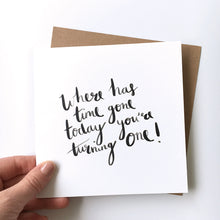 Where has
time gone
today you're
turning one!